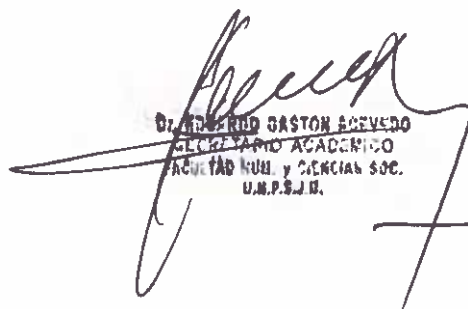 Dr. EDUARDO GASTON ACEVEDO
SECRETARIO ACADEMICO
FACULTAD HUM. y CIENCIAS SOC.
U.N.P.S.J.B.